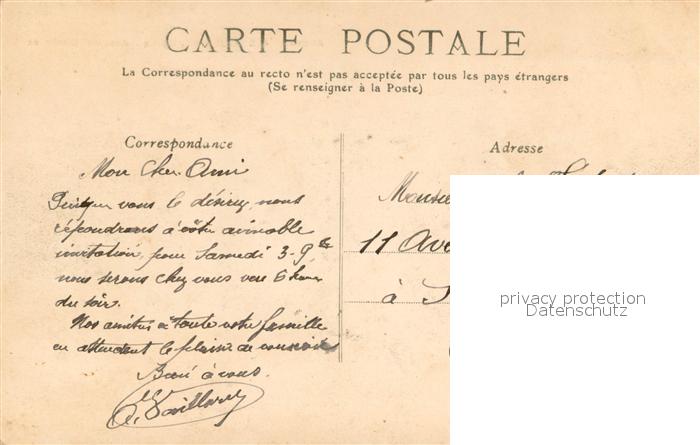 CARTE POSTALE
La Correspondance au recto n'est pas acceptée par tous les pays étrangers
(Se renseigner à la Poste)
Correspondance
Adresse
Mon cher Ami
Puisque vous le désirez, nous
répondrons à votre aimable
invitation, pour Samedi 3-9bre
nous serons chez vous vers 6 heures
du soir.
Nos amitiés à toute votre famille
en attendant le plaisir de vous voir
Bien à vous
11
à
privacy protection
Datenschutz